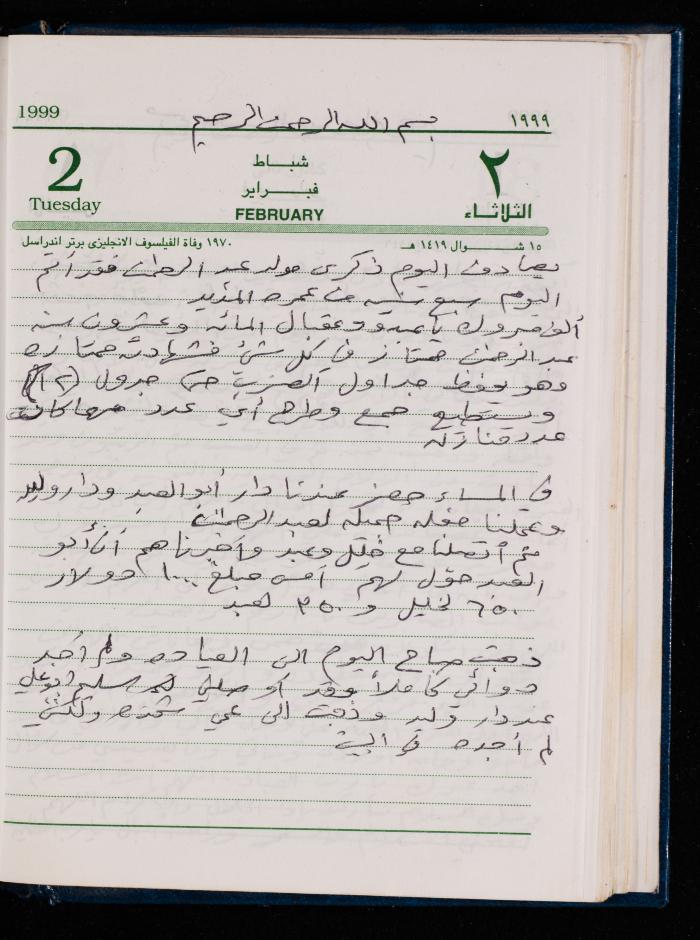 1999
بسم الله الرحمن الرحيم
١٩٩٩
2
Tuesday
شباط
فبراير
FEBRUARY
٢
الثلاثاء
١٥ شوال ١٤١٩ هـ
١٩٧٠ وفاة الفيلسوف الانجليزى برتر اندراسل
يصادف اليوم ذكرى مولد عبد الرحمن فقد أتم
اليوم سبع سنه من عمره المديد
ألف مبروك يا عبود وعقبال المائه وعشرون سنه
عبد الرحمن ممتاز في كل شئ فشهادته ممتازه
وهو يحفظ جداول الضرب حتى جدول (١٢)
ويستطيع جمع وطرح أي عدد مهما كان
عدد منازله
في المساء حضر عندنا دار أبو العبد ودار وليد
وعملنا حفله جميله لعبد الرحمن
ثم أتصلنا مع خليل وعبد وأخبرناهم أن أبو
العبد حوّل لهم أمس مبلغ ١٠٠٠ دولار
٦٥٠ لخليل و ٣٥٠ لعبد
ذهبت صباح اليوم الى العياده ولم أجد
دوائي كاملاً وقد أوصلني سليم ابو علي
عند دار وليد وذهبت الى علي شحده ولكني
لم أجده في البيت